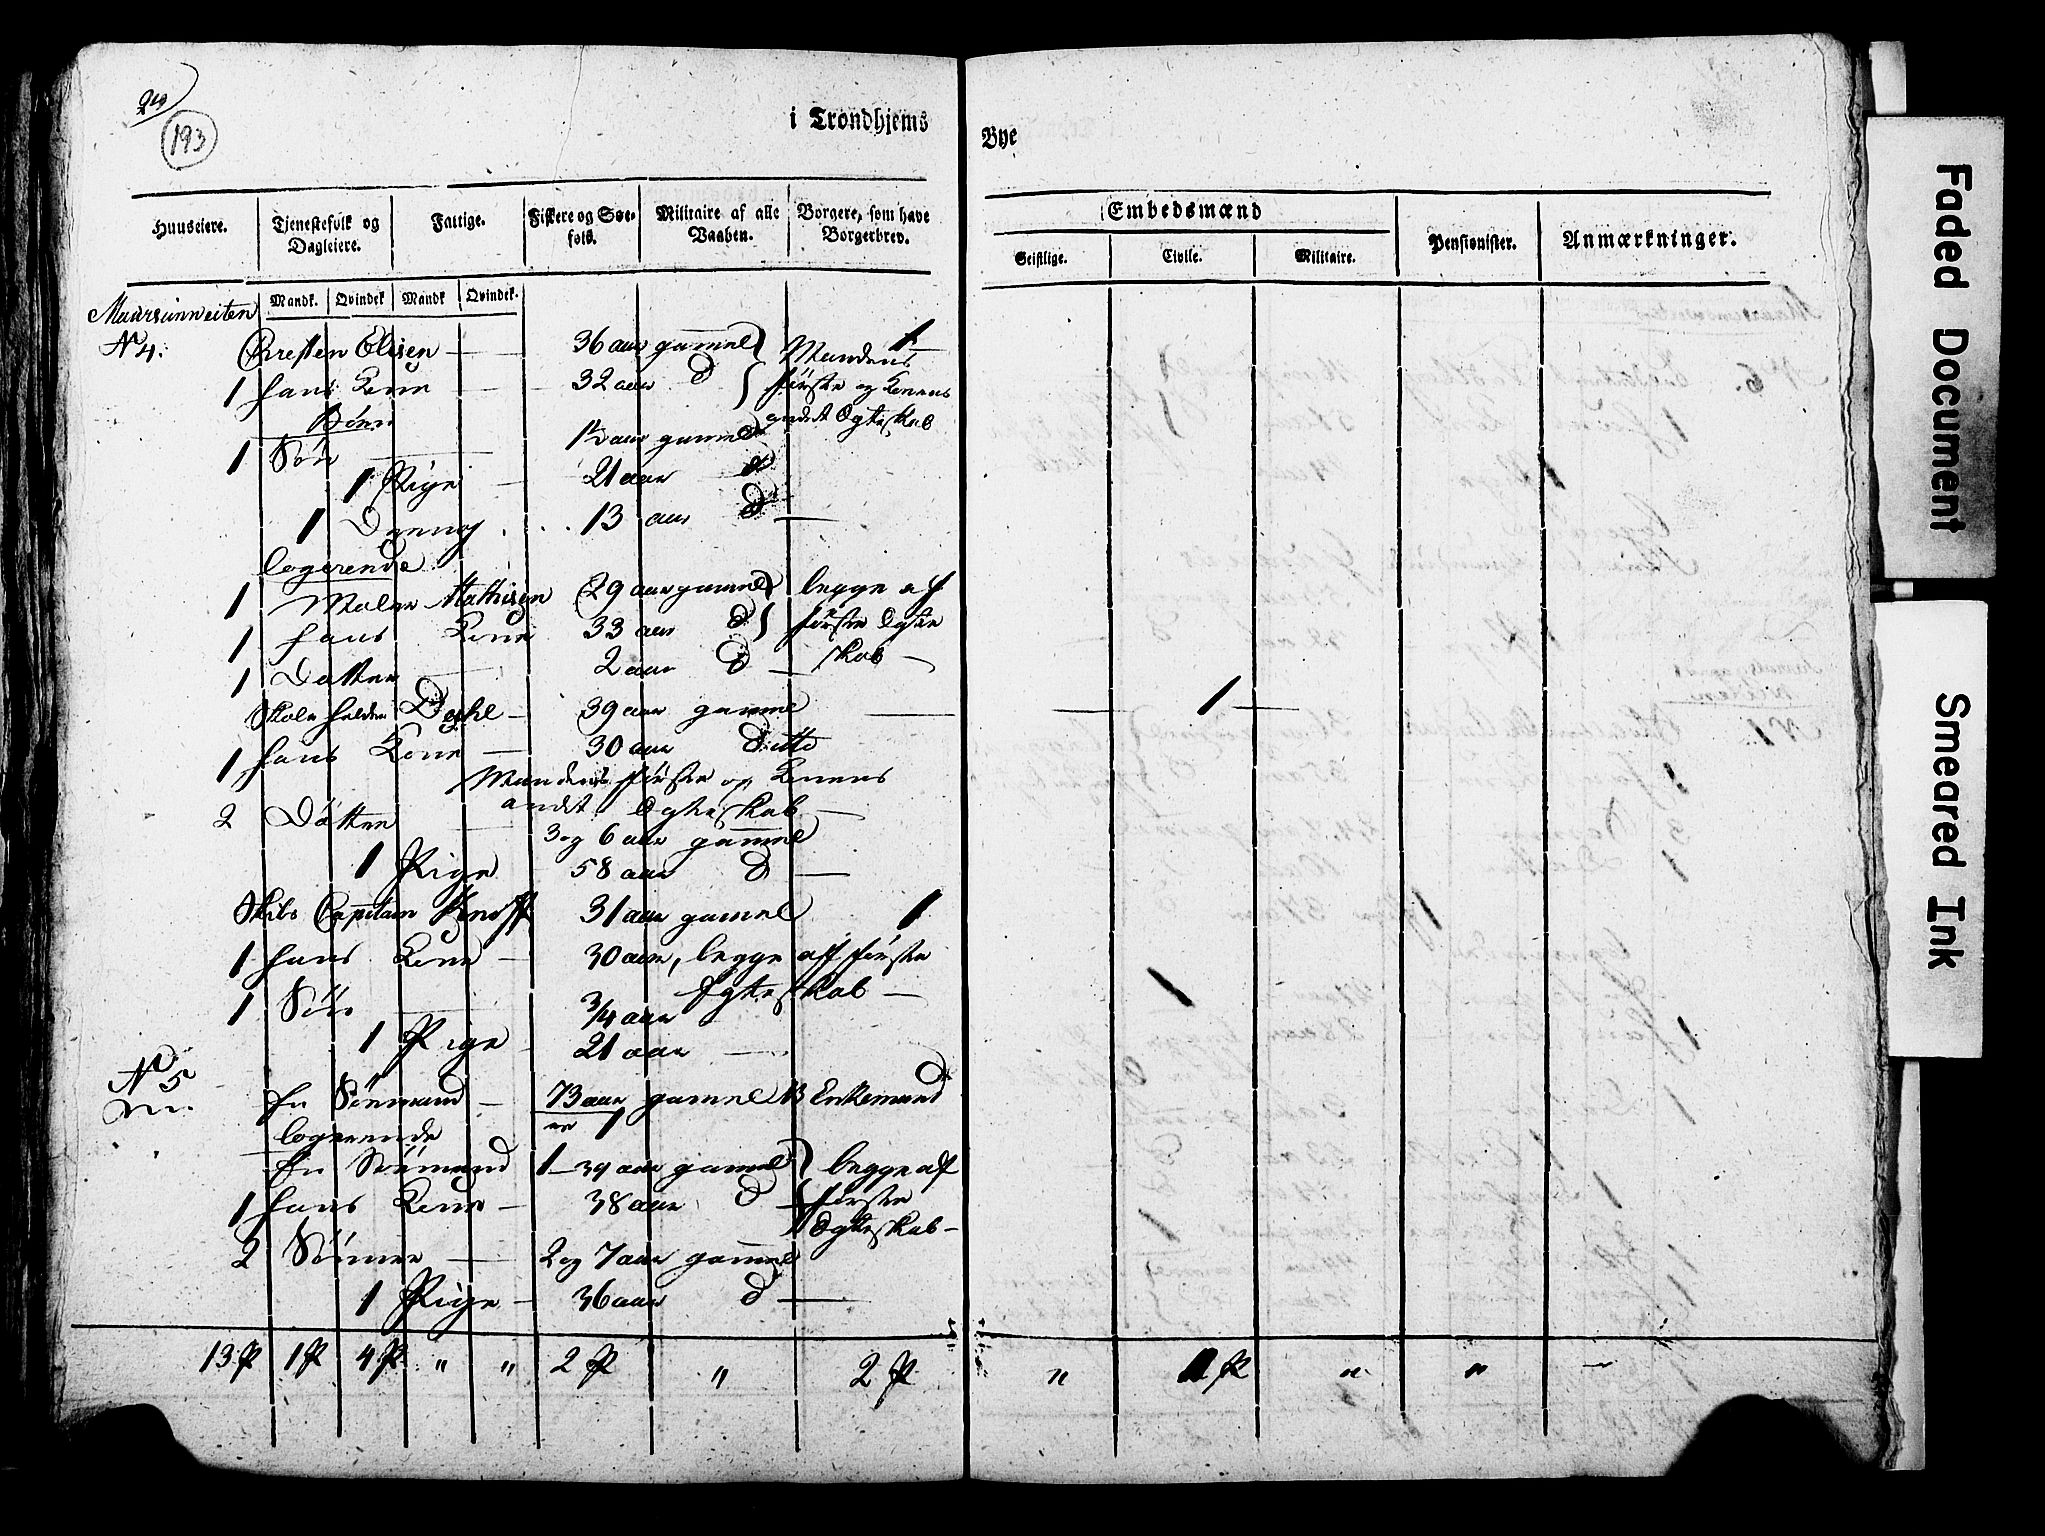 193
i Trondhjems
Bye
Huuseiere.
Tjenestefolk og
Dagleiere.
Fattige.
Fiskere og Søe-
folk.
Militaire af alle
Vaaben.
Borgere, som have
Borgerbrev.
Embedsmænd
Geistlige.
Civile.
Militaire.
Pensionister.
Anmærkninger.
Mandk. Qvindek Mandk Qvindek.
N 4.
Christen Elisen — 36 aar gammel 1
1 hans Kone — 32 aar d
Mandens
første og Konens
andet Egteskab
Børn
1 Søn — 1½ aar gammel
1 Pige — 21 aar d
1 Dreng 13 aar d —
logerende
1 Maler Mathisen 29 aar gammel begge af
1 hans Kone 33 aar d første Egte
1 Datter 2 aar d — skab —
Skole holder Dahl — 39 aar gammel — 1 —
1 hans Kone — 30 aar ditto
Mandens første og Konens
andet Egteskab —
2 Døttre —
3 og 6 aar gammel
1 Pige 58 aar d —
Skibs Capitain Knoff 31 aar gammel 1
1 hans Kone — 30 aar, begge af første
Egteskab —
1 Søn 3/4 aar
1 Pige 21 aar —
N 5
en Søemand — 73 aar gammel Enkemand
1
logerende
en Søemand 1 — 39 aar gammel begge af
1 hans Kone — 38 aar d — første
Egteskab —
2 Sønner — 2 og 7 aar gammel
1 Pige — 36 aar d —
13 P 1 P 4 P " " 2 P " 2 P " 1 P " " —
Faded Document
Smeared Ink